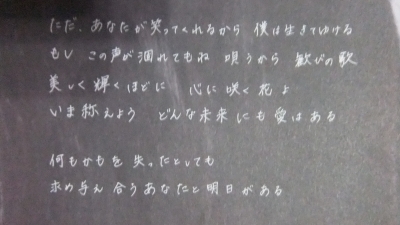 ただ、あなたが笑ってくれるから 僕は生きてゆける
もし この声が涸れてもね 唄うから 歓びの歌
美しく輝くほどに 心に咲く花よ
いま称えよう どんな未来にも愛はある
何もかもを失ったとしても
求め与え合うあなたと明日がある